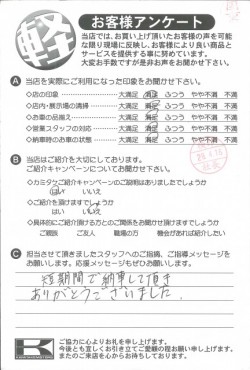 軽
お客様アンケート
当店では、お買い上げ頂いたお客様の声を可能
な限り現場に反映し、お客様により良い商品と
サービスを提供する事に努めています。
大変お手数ですが是非お声をお聞かせ下さい。
A 当店を実際にご利用になった印象をお聞かせ下さい。
◇店の印象 大満足 満足 ふつう やや不満 不満
◇店内・展示場の清掃 大満足 満足 ふつう やや不満 不満
◇お車の品揃え 大満足 満足 ふつう やや不満 不満
◇営業スタッフの対応 大満足 満足 ふつう やや不満 不満
◇納車時のお車の状態 大満足 満足 ふつう やや不満 不満
B 当店はご紹介を大切にしております。
ご紹介キャンペーンについてお聞かせ下さい。
◇カミタケご紹介キャンペーンのご説明はありましたでしょうか
はい いいえ
◇ご紹介を頂けますでしょうか
はい いいえ
◇具体的にご紹介頂ける方とのご関係をお聞かせ頂けますでしょうか
ご親戚 ご友人 職場の方 機会があれば紹介したい
C 担当させて頂きましたスタッフへのご指摘、ご指導メッセージを
お願いします。応援メッセージもぜひお願いします。
短期間で納車して頂き
ありがとうございました。
K
ご協力に心よりお礼を申し上げます。
今後とも宜しくお引き立てご愛顧の程お願い申し上げます。
またのご来店を心からお待ちしております。